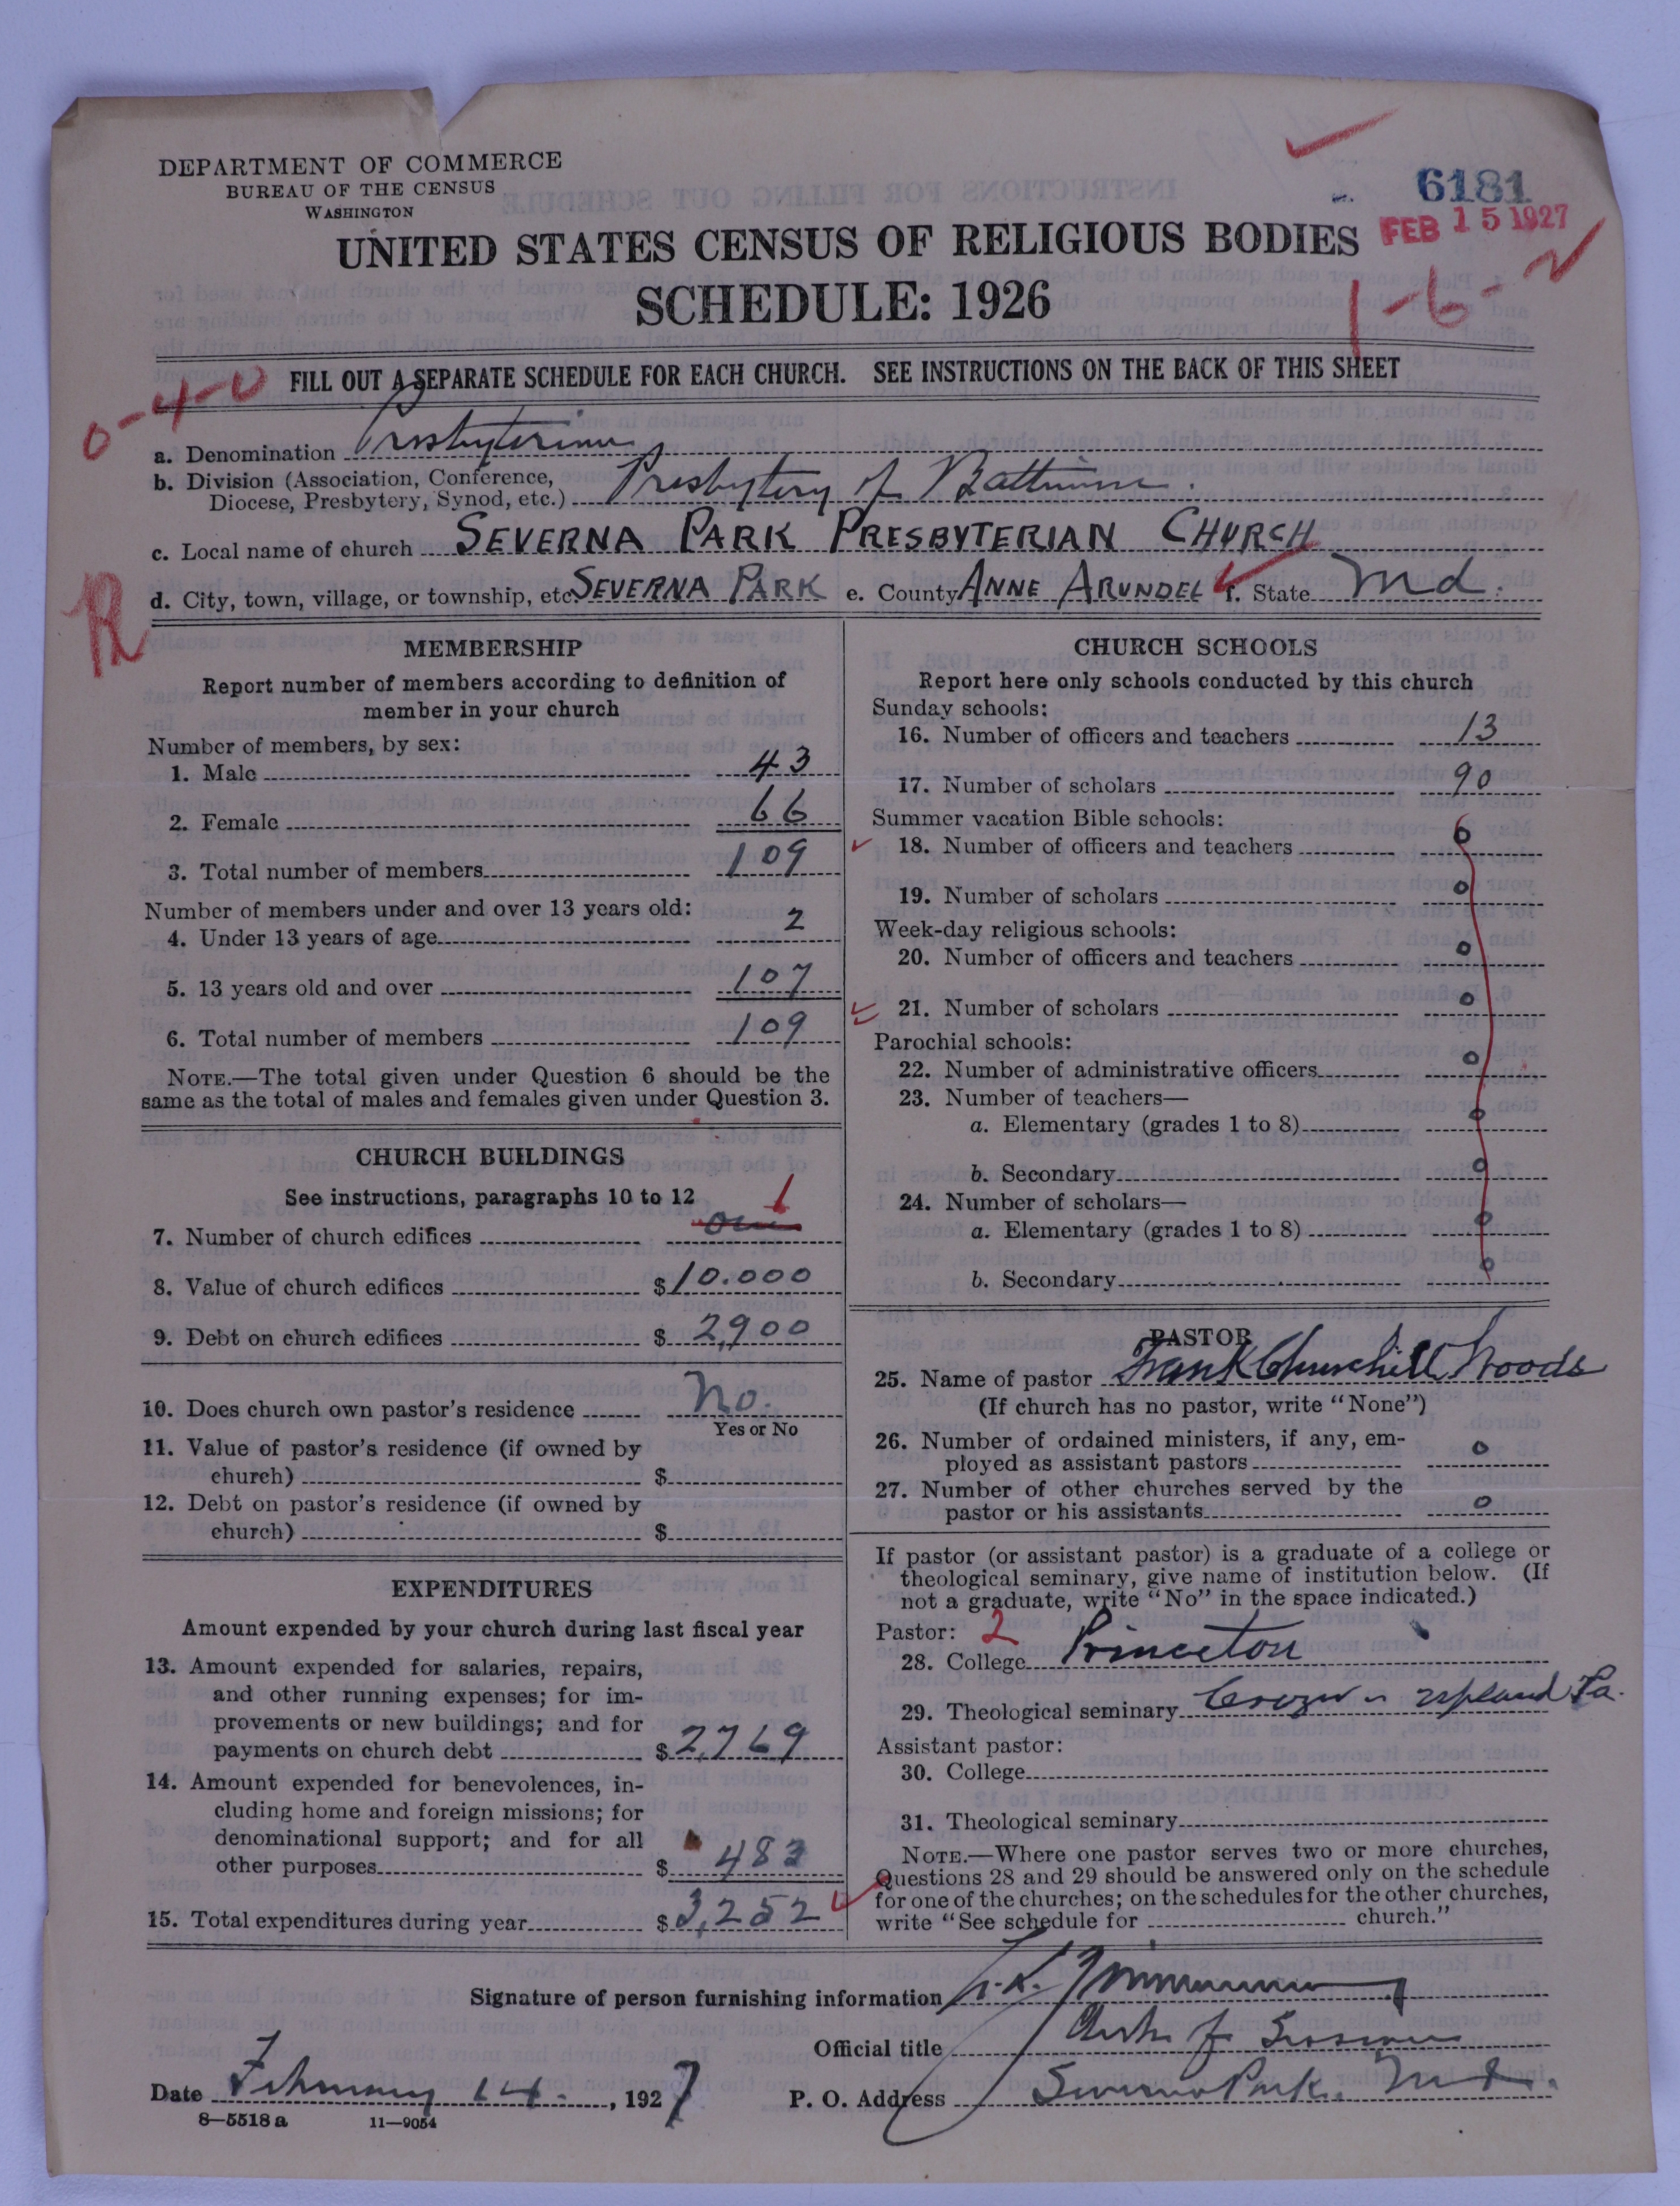 DEPARTMENT OF COMMERCE
BUREAU OF THE CENSUS
WASHINGTON
6181
FEB 15 1927
UNITED STATES CENSUS OF RELIGIOUS BODIES
SCHEDULE: 1926
1-6-
FILL OUT A SEPARATE SCHEDULE FOR EACH CHURCH. SEE INSTRUCTIONS ON THE BACK OF THIS SHEET
0-4-0
a. Denomination Presbyterian
b. Division (Association, Conference,
Diocese, Presbytery, Synod, etc.) Presbytery of Baltimore.
c. Local name of church SEVERNA PARK PRESBYTERIAN CHURCH
d. City, town, village, or township, etc. SEVERNA PARK e. County ANNE ARUNDEL f. State Md.
MEMBERSHIP
Report number of members according to definition of
member in your church
Number of members, by sex:
1. Male 43
2. Female 66
3. Total number of members 109
Number of members under and over 13 years old:
4. Under 13 years of age 2
5. 13 years old and over 107
6. Total number of members 109
NOTE.—The total given under Question 6 should be the
same as the total of males and females given under Question 3.
CHURCH BUILDINGS
See instructions, paragraphs 10 to 12
1
7. Number of church edifices one
8. Value of church edifices $10.000
9. Debt on church edifices $2,900
10. Does church own pastor's residence No.
Yes or No
11. Value of pastor's residence (if owned by
church) $
12. Debt on pastor's residence (if owned by
church) $
EXPENDITURES
Amount expended by your church during last fiscal year
13. Amount expended for salaries, repairs,
and other running expenses; for im-
provements or new buildings; and for
payments on church debt $2,769
14. Amount expended for benevolences, in-
cluding home and foreign missions; for
denominational support; and for all
other purposes $483
15. Total expenditures during year $3,252
CHURCH SCHOOLS
Report here only schools conducted by this church
Sunday schools:
16. Number of officers and teachers 13
17. Number of scholars 90
Summer vacation Bible schools:
18. Number of officers and teachers 0
19. Number of scholars 0
Week-day religious schools:
20. Number of officers and teachers 0
21. Number of scholars 0
Parochial schools:
22. Number of administrative officers 0
23. Number of teachers—
a. Elementary (grades 1 to 8) 0
b. Secondary 0
24. Number of scholars—
a. Elementary (grades 1 to 8) 0
b. Secondary 0
PASTOR
25. Name of pastor Frank Churchill Woods
(If church has no pastor, write "None")
26. Number of ordained ministers, if any, em-
ployed as assistant pastors 0
27. Number of other churches served by the
pastor or his assistants 0
If pastor (or assistant pastor) is a graduate of a college or
theological seminary, give name of institution below. (If
not a graduate, write "No" in the space indicated.)
Pastor: 2
28. College Princeton
29. Theological seminary Crozer - Upland Pa.
Assistant pastor:
30. College
31. Theological seminary
NOTE.—Where one pastor serves two or more churches,
Questions 28 and 29 should be answered only on the schedule
for one of the churches; on the schedules for the other churches,
write "See schedule for church."
Signature of person furnishing information
Official title Clerk of Session
Date February 14, 1927 P. O. Address Severna Park. Md.
8-5518a 11-9054